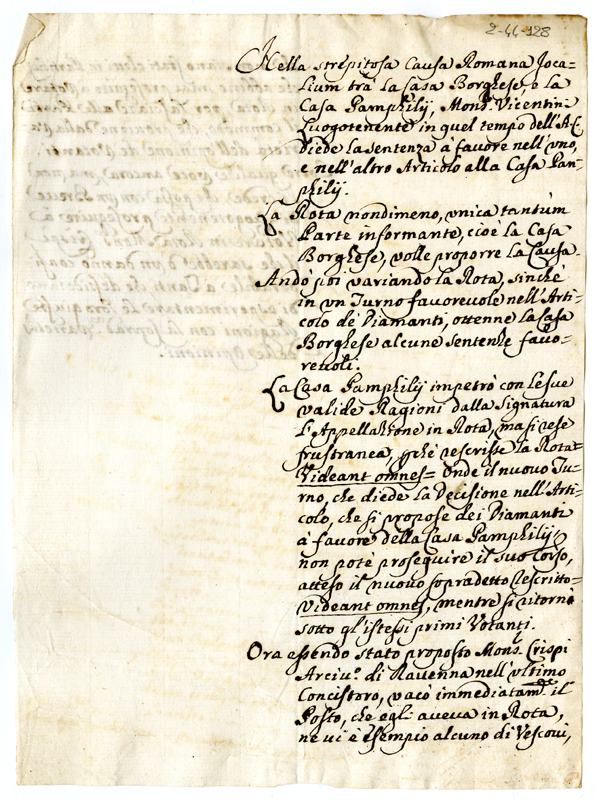 2-44-128
Nella strepitosa Causa Romana Joca-
lium trà la Casa Borghese, e la
Casa Pamphilij, Mons.r Vicentini
Luogotenente in quel tempo dell'A.C.
diede la sentenza à favore nell'uno,
e nell'altro Articolo alla Casa Pam-
philij.
La Rota nondimeno, unica tantùm
Parte informante, cioè la Casa
Borghese, volle proporre la Causa.
Andò poi variando la Rota, sinchè
in un Turno favorevole nell'Arti-
colo de' Diamanti, ottenne la Casa
Borghese alcune sentenze favo-
revoli.
La Casa Pamphilij impetrò con le sue
valide Ragioni dalla Signatura
l'Appellazione in Rota, ma si rese
frustranea, p.chè rescrisse la Rota=
Videant omnes= Onde il nuovo Tu-
rno, che diede la Decisione nell'Arti-
colo, che si propose dei Diamanti
à favore della Casa Pamphilij,
non potè proseguire il suo Corso,
atteso il nuovo sopradetto rescritto=
Videant omnes, mentre si ritornò
sotto gl'istessi primi Votanti.
Ora essendo stato proposto Mons.r Crispi
Arciv.o di Ravenna nell'ultimo
Concistoro, vacò immediatam.te il
Posto, che egli aveva in Rota,
ne vi è esempio alcuno di Vescovi,